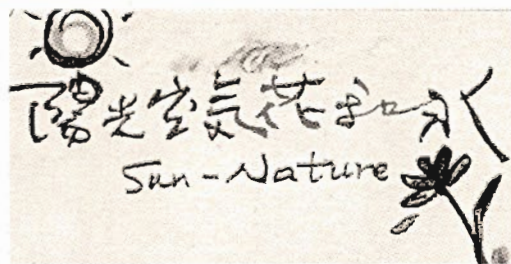 陽光空気花和水
Sun-Nature